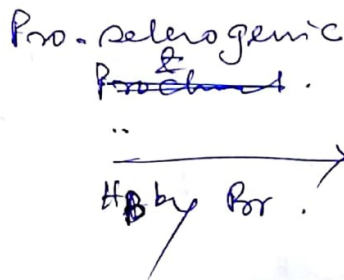 Pro-sclerogenic
&
..
HB by Br.